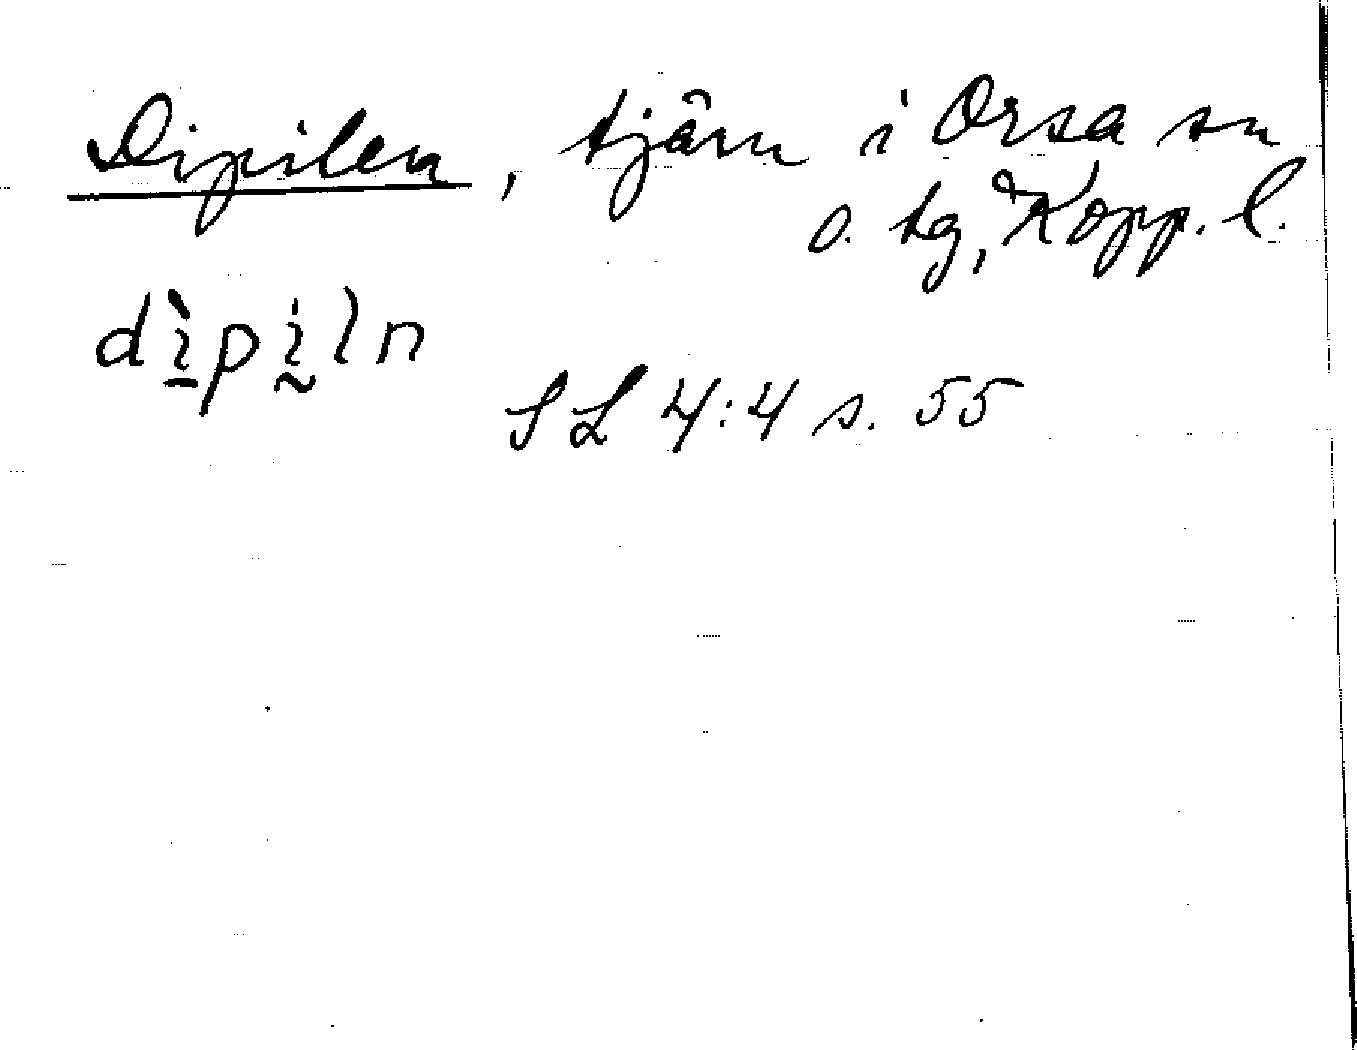 Dipilen, tjärn i Orsa sn
o. tg, Kopp. l.
dìpiln
SL 4:4 s. 55